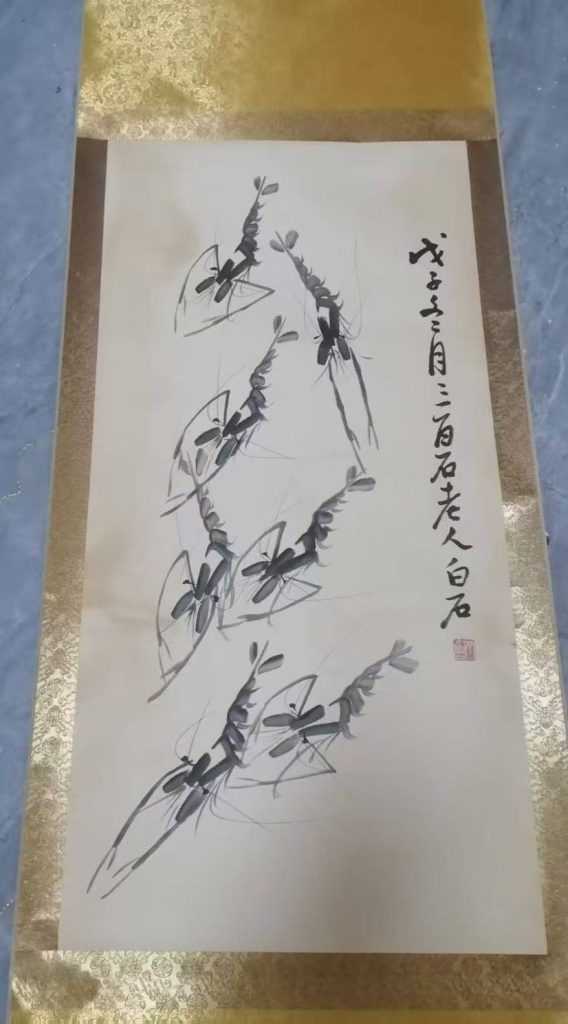 戊子冬二月三百石老人白石